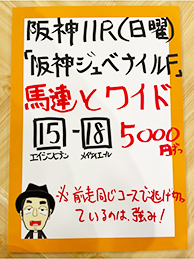 阪神11R(日曜)
「阪神ジュベナイルF」
馬連とワイド
15-18 5000円ずつ
エイシンヒテン メイケイエール
※前走同じコースで逃げ切っ
ているのは、強み!